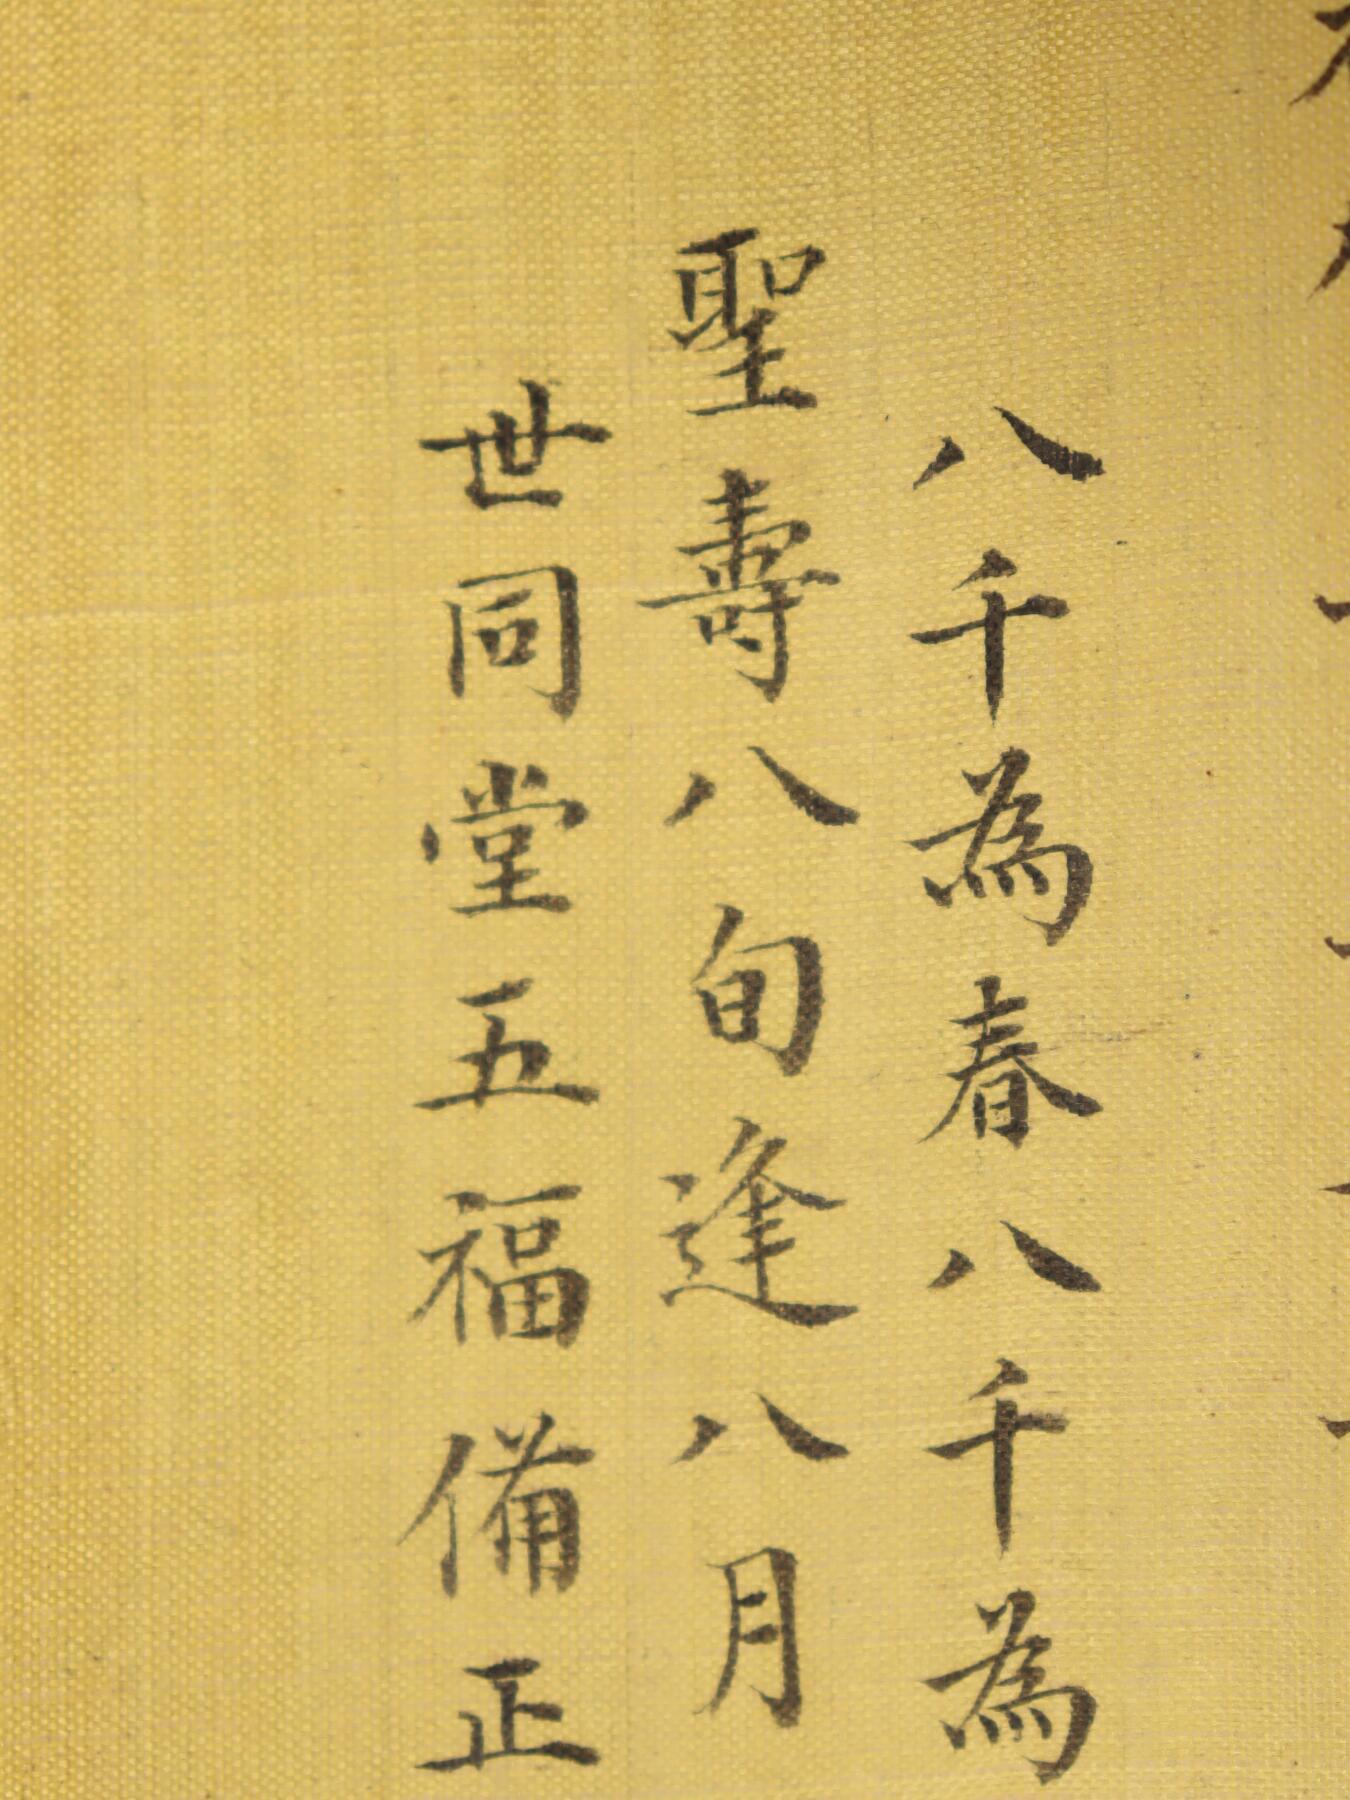 八千為春八千為
聖壽八旬逢八月
世同堂五福備正